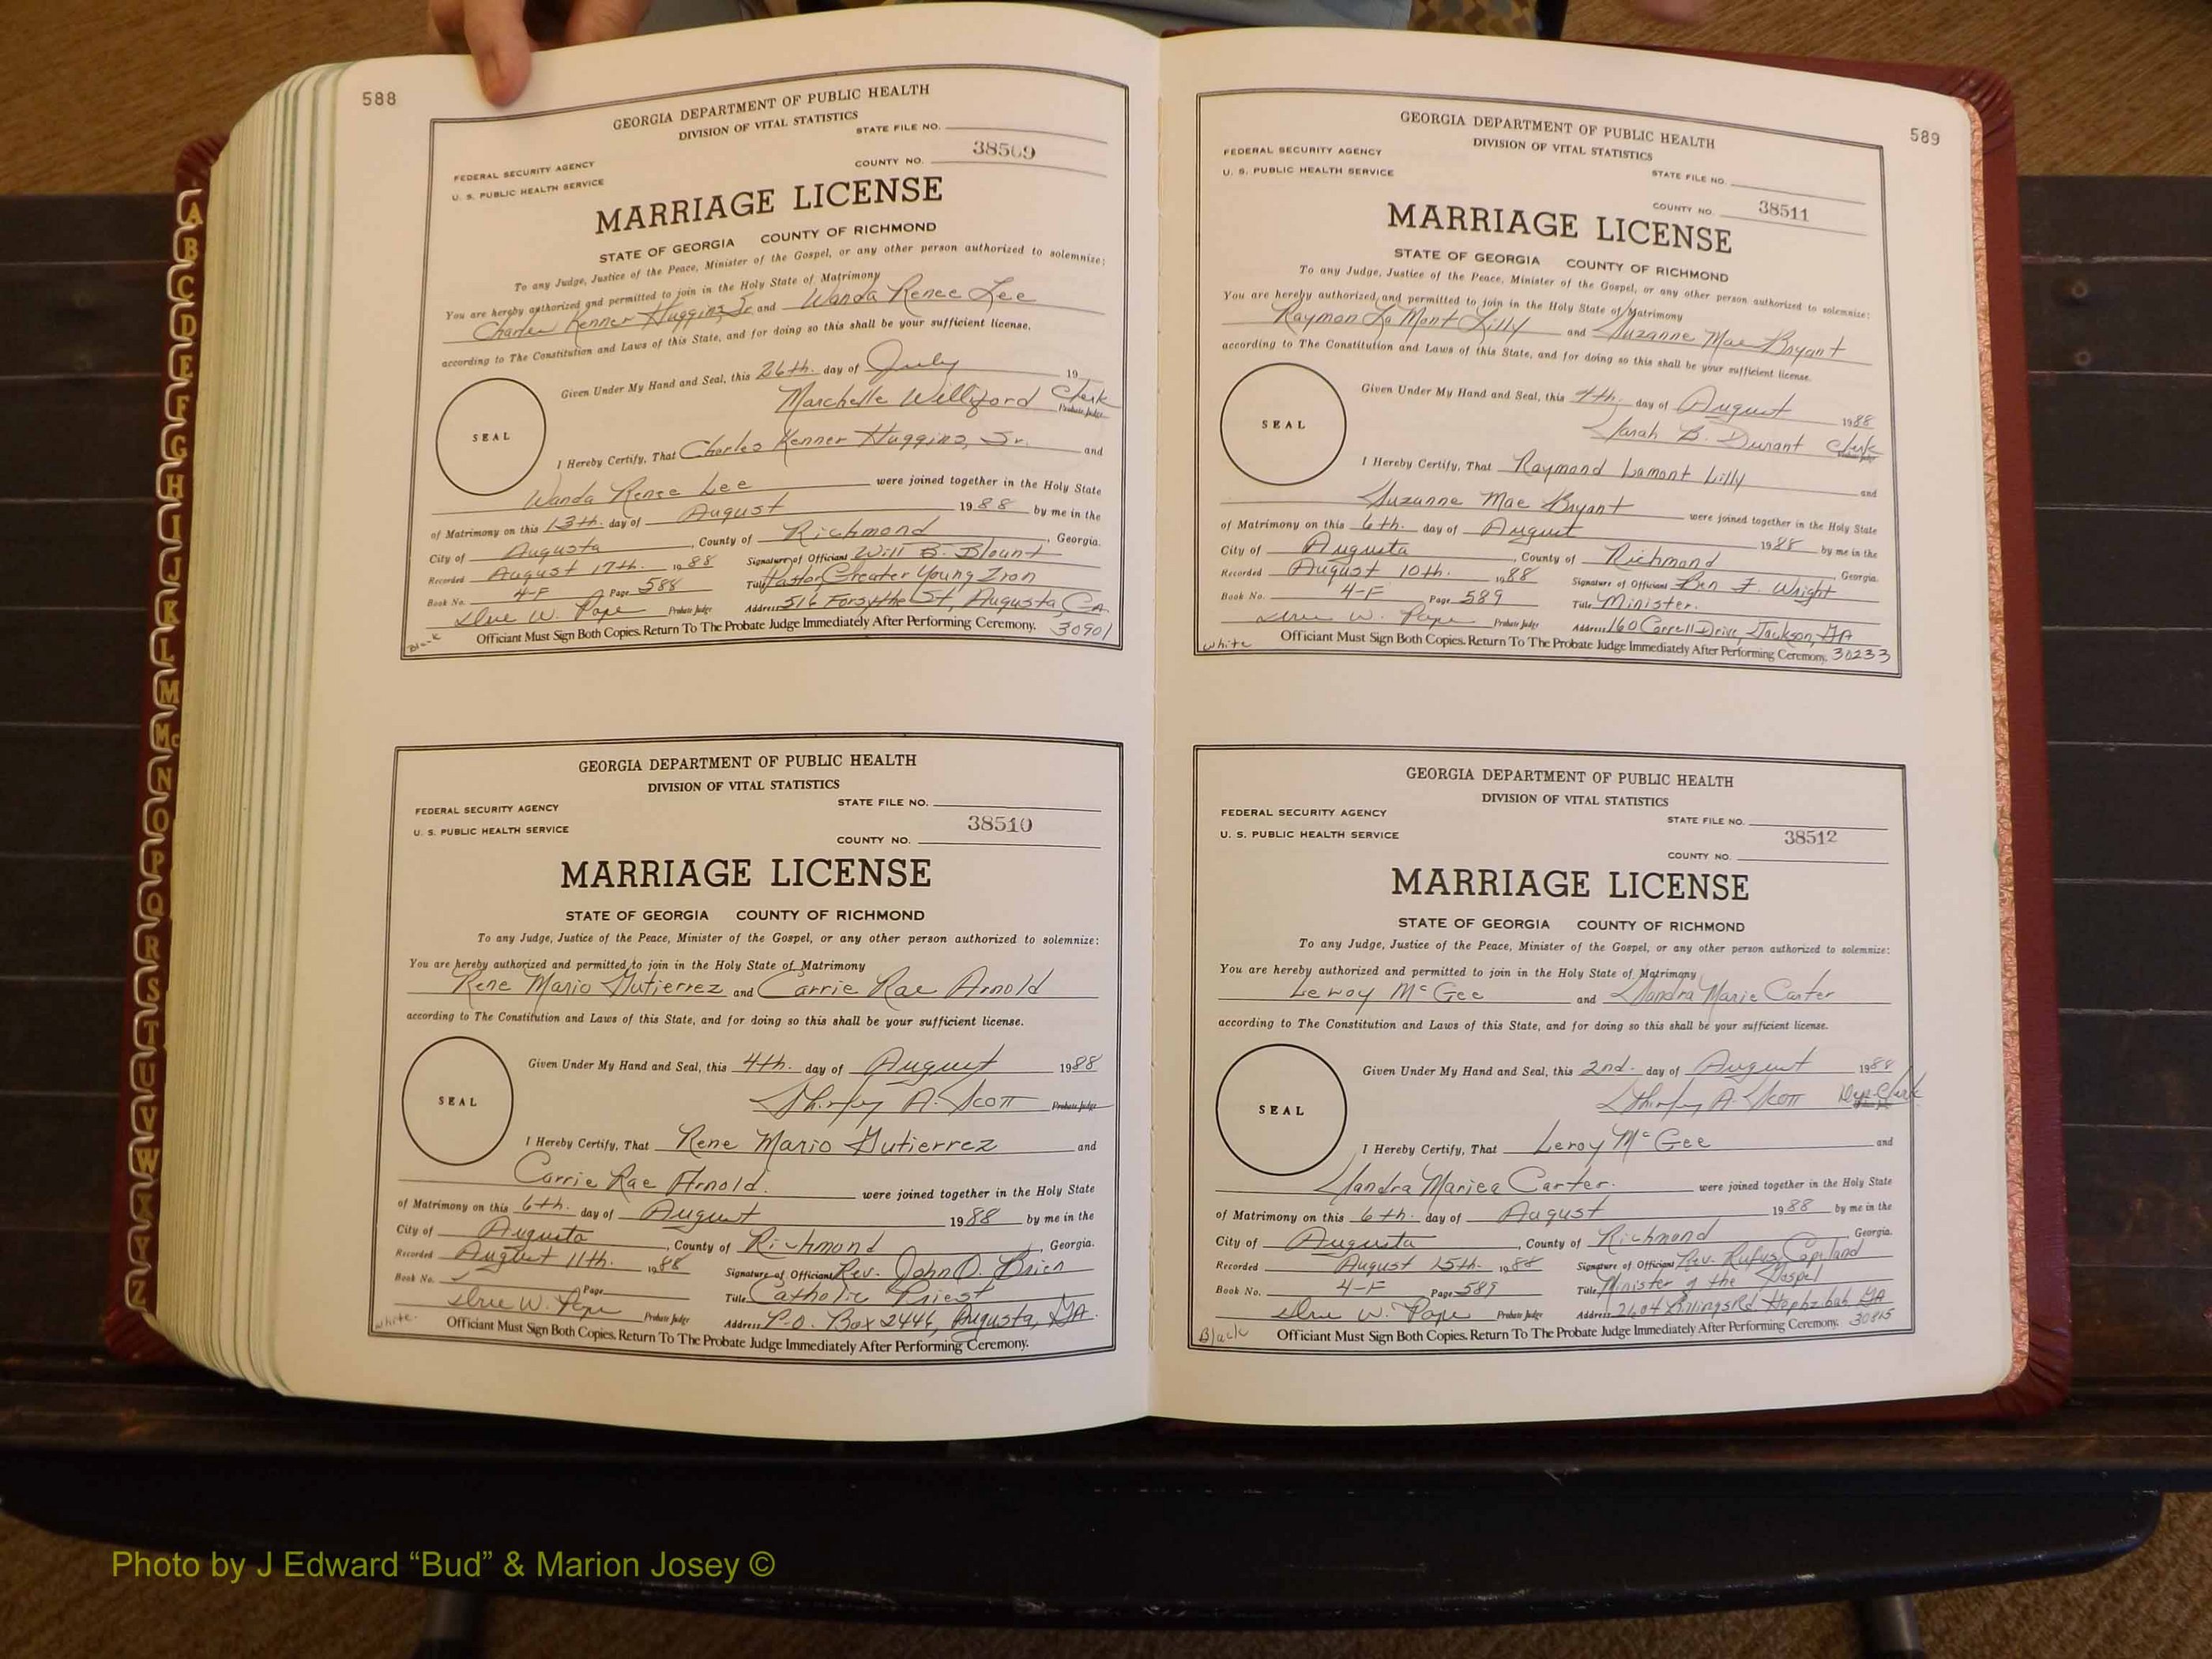 588
GEORGIA DEPARTMENT OF PUBLIC HEALTH
DIVISION OF VITAL STATISTICS
STATE FILE NO.
38509
FEDERAL SECURITY AGENCY
COUNTY NO.
U. S. PUBLIC HEALTH SERVICE
MARRIAGE LICENSE
STATE OF GEORGIA COUNTY OF RICHMOND
To any Judge, Justice of the Peace, Minister of the Gospel, or any other person authorized to solemnize:
You are hereby authorized and permitted to join in the Holy State of Matrimony
Charles Kenner Huggins, Jr and Wanda Renee Lee
according to The Constitution and Laws of this State, and for doing so this shall be your sufficient license.
Given Under My Hand and Seal, this 26th. day of July 19
Marchelle Williford Clerk
Probate Judge
SEAL
I Hereby Certify, That Charles Kenner Huggins, Jr. and
Wanda Renee Lee were joined together in the Holy State
of Matrimony on this 13th. day of August 1988 by me in the
City of Augusta, County of Richmond, Georgia.
Recorded August 17th. 1988 Signature of Officiant Will B. Blount
Book No. 4-F Page 588 Title Pastor, Greater Young Zion
W. Pope Probate Judge Address 516 Forsythe St, Augusta, GA.
Officiant Must Sign Both Copies. Return To The Probate Judge Immediately After Performing Ceremony. 30901
Black
GEORGIA DEPARTMENT OF PUBLIC HEALTH
DIVISION OF VITAL STATISTICS
STATE FILE NO.
FEDERAL SECURITY AGENCY
38510
U. S. PUBLIC HEALTH SERVICE
COUNTY NO.
MARRIAGE LICENSE
STATE OF GEORGIA COUNTY OF RICHMOND
To any Judge, Justice of the Peace, Minister of the Gospel, or any other person authorized to solemnize:
You are hereby authorized and permitted to join in the Holy State of Matrimony
Rene Mario Gutierrez and Carrie Rae Arnold
according to The Constitution and Laws of this State, and for doing so this shall be your sufficient license.
Given Under My Hand and Seal, this 4th. day of August 1988
Shirley A. Scott Probate Judge
SEAL
I Hereby Certify, That Rene Mario Gutierrez and
Carrie Rae Arnold. were joined together in the Holy State
of Matrimony on this 6th. day of August 1988 by me in the
City of Augusta, County of Richmond, Georgia.
Recorded August 11th. 1988 Signature of Officiant Rev. John O. Brien
Book No. Page Title Catholic Priest
W. Pope Probate Judge Address P.O. Box 2446, Augusta, GA.
white. Officiant Must Sign Both Copies. Return To The Probate Judge Immediately After Performing Ceremony.
589
GEORGIA DEPARTMENT OF PUBLIC HEALTH
DIVISION OF VITAL STATISTICS
FEDERAL SECURITY AGENCY
U. S. PUBLIC HEALTH SERVICE
STATE FILE NO.
COUNTY NO. 38511
MARRIAGE LICENSE
STATE OF GEORGIA COUNTY OF RICHMOND
To any Judge, Justice of the Peace, Minister of the Gospel, or any other person authorized to solemnize:
You are hereby authorized and permitted to join in the Holy State of Matrimony
Raymon La Mont Lilly and Suzanne Mae Bryant
according to The Constitution and Laws of this State, and for doing so this shall be your sufficient license.
Given Under My Hand and Seal, this 4th. day of August 1988
Sarah B. Durant Clerk
Probate Judge
SEAL
I Hereby Certify, That Raymond Lamont Lilly and
Suzanne Mae Bryant were joined together in the Holy State
of Matrimony on this 6th. day of August 1988 by me in the
City of Augusta, County of Richmond Georgia.
Recorded August 10th. 1988 Signature of Officiant Ben F. Wright
Book No. 4-F Page 589 Title Minister.
W. Pope Probate Judge Address 160 Correll Drive, Jackson, GA
white Officiant Must Sign Both Copies. Return To The Probate Judge Immediately After Performing Ceremony. 30233
GEORGIA DEPARTMENT OF PUBLIC HEALTH
DIVISION OF VITAL STATISTICS
FEDERAL SECURITY AGENCY
STATE FILE NO.
U. S. PUBLIC HEALTH SERVICE
38512
COUNTY NO.
MARRIAGE LICENSE
STATE OF GEORGIA COUNTY OF RICHMOND
To any Judge, Justice of the Peace, Minister of the Gospel, or any other person authorized to solemnize:
You are hereby authorized and permitted to join in the Holy State of Matrimony
Leroy McGee and Sandra Marie Carter
according to The Constitution and Laws of this State, and for doing so this shall be your sufficient license.
Given Under My Hand and Seal, this 2nd. day of August 1988
Shirley A. Scott Dep. Clerk
SEAL
I Hereby Certify, That Leroy McGee and
Sandra Mariea Carter. were joined together in the Holy State
of Matrimony on this 6th. day of August 1988 by me in the
City of Augusta, County of Richmond Georgia.
Recorded August 15th. 1988 Signature of Officiant Rev. Rufus Copeland
Book No. 4-F Page 589 Title Minister of the Gospel
W. Pope Probate Judge Address 2604 Billings Rd. Hephzibah GA
Black Officiant Must Sign Both Copies. Return To The Probate Judge Immediately After Performing Ceremony. 30815
A
B
C
D
E
F
G
H
I
J
K
L
M
Mc
N
O
P
Q
R
S
T
U
V
W
X
Y
Z
Photo by J Edward “Bud” & Marion Josey ©